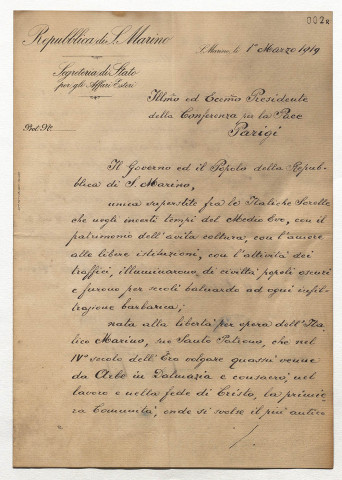 002R
Repubblica di S. Marino
S. Marino, li 1° Marzo 1919
Segreteria di Stato
per gli Affari Esteri
Illmo ed Eccmo Presidente
della Conferenza per la Pace
Prot. N°.
Parigi
Il Governo ed il Popolo della Repub-
blica di S. Marino,
unica superstite fra le Italiche Sorelle
che negli incerti tempi del Medio Evo, con il
patrimonio dell'avita coltura, con l'amore
alle libere istituzioni, con l'attività dei
traffici, illuminarono di civiltà popoli oscuri
e furono per secoli baluardo ad ogni infil-
trazione barbarica;
nata alla libertà per opera dell'Ita-
lico Marino, suo Santo Patrono, che nel
IV° secolo dell'Era volgare quassù venne
da Arbe in Dalmazia e consacrò, nel
lavoro e nella fede di Cristo, la primie-
ra Comunità, onde si svolse il più antico